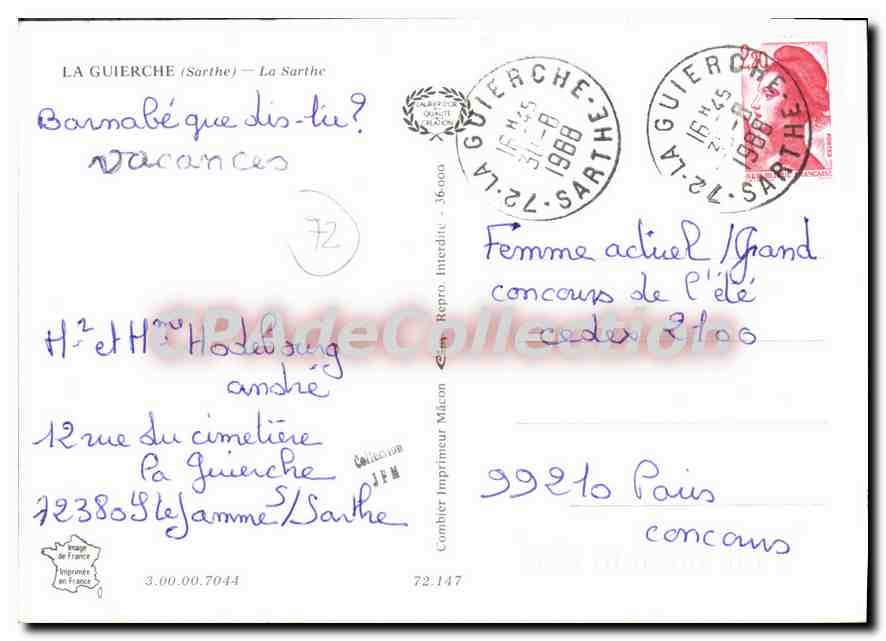 LA GUIERCHE (Sarthe) — La Sarthe
Barnabé que dis-tu?
vacances
72
Mr et Mme Hodebourg
andré
12 rue du cimetière
La Guierche
72380 Ste Jamme S/Sarthe
Collection
JPM
Image
de France
Imprimée
en France
3.00.00.7044
72.147
LAURIER D'OR
QUALITÉ
CRÉATION
Combier Imprimeur Mâcon Cim Repro. Interdite - 36.000
72-LA GUIERCHE-SARTHE
16 H 45
31-8
1988
72-LA GUIERCHE-SARTHE
16 H 45
31-8
1988
2,20
POSTES
REPUBLIQUE FRANCAISE
Femme actuel/Grand
concours de l'été
cedex 2100
99210 Paris
concours
CPAdeCollection